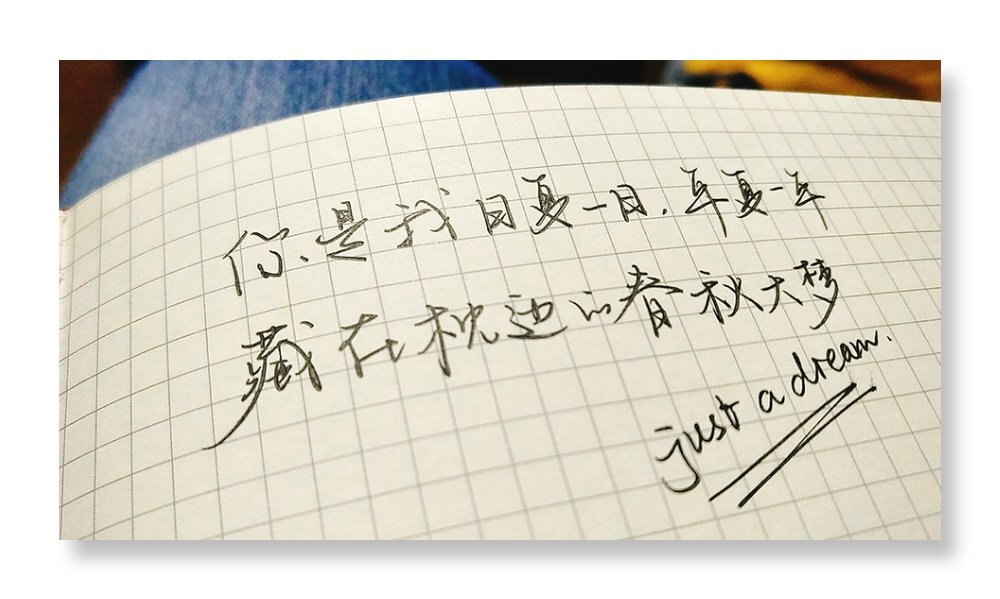 你是我日夏一日.年夏一年
藏在枕边的春秋大梦
just a dream.